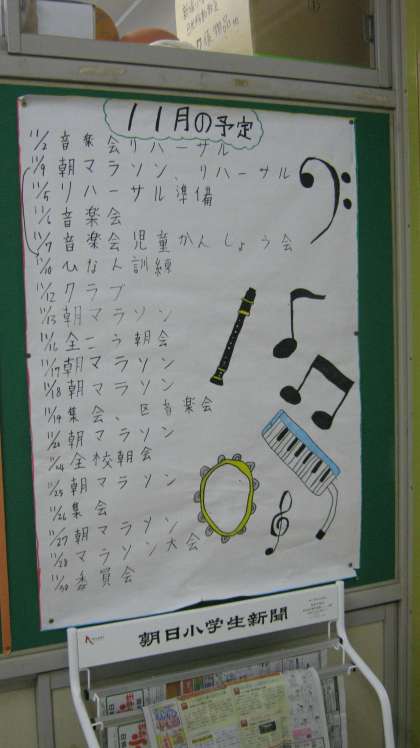 11月の予定
11/2 音楽会リハーサル
11/9 朝マラソン、リハーサル
11/5 リハーサル準備
11/6 音楽会
11/7 音楽会児童かんしょう会
11/10 ひなん訓練
11/12 クラブ
11/13 朝マラソン
11/16 全こう朝会
11/17 朝マラソン
11/18 朝マラソン
11/19 集会、区音楽会
朝マラソン
11/24 全校朝会
11/25 朝マラソン
11/26 集会
11/27 朝マラソン
11/28 マラソン大会
11/30 委員会
朝日小学生新聞